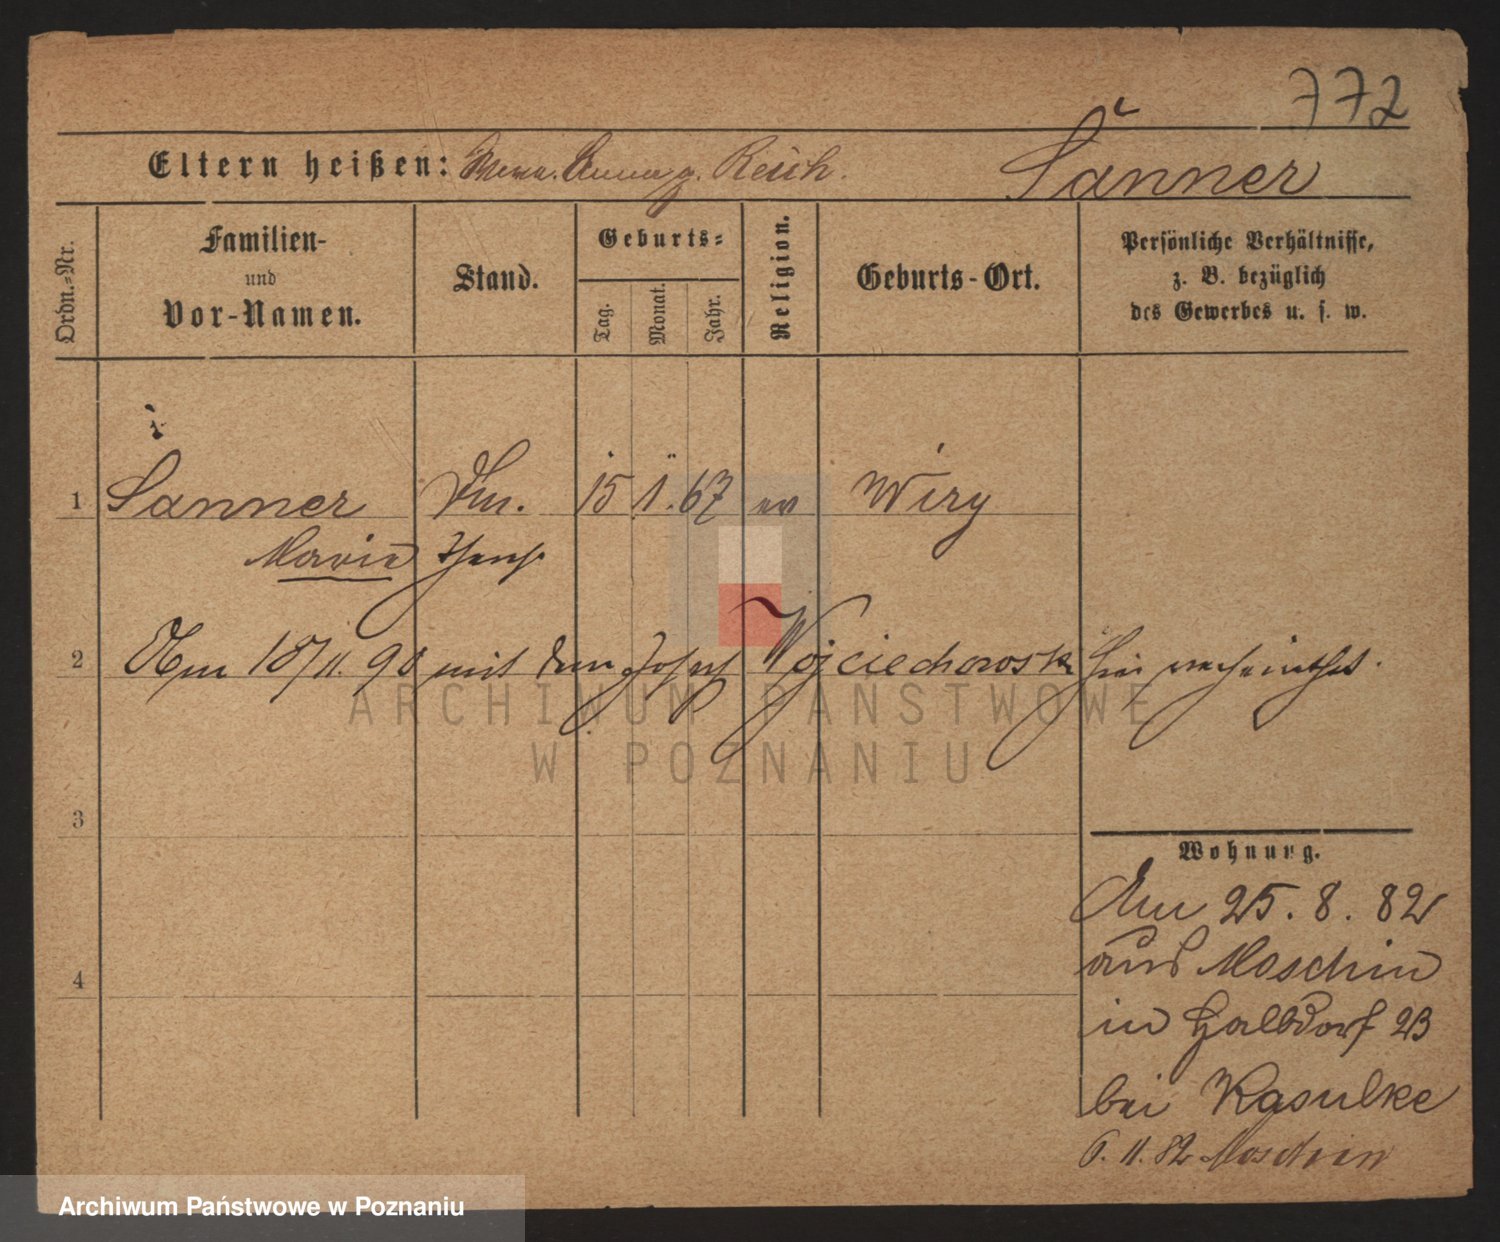 772
Eltern heißen: Anna g. Reich. Sanner
Ordn.-Nr.
Familien-
und
Vor-Namen.
Stand.
Geburts-
Tag.
Monat.
Jahr.
Religion.
Geburts-Ort.
Persönliche Verhältnisse,
z. B. bezüglich
des Gewerbes u. s. w.
1 Sanner 15 1. 67 ev Wiry
Marie
2 Am 18/11. 90 mit dem Josef Wojciechowski hier verheirathet.
3
Wohnung.
Am 25. 8. 82
aus Moschin
4
in Halbdorf 23
bei Kasulke
6. 11. 82 Moschin
ARCHIWUM PAŃSTWOWE
W POZNANIU
Archiwum Państwowe w Poznaniu